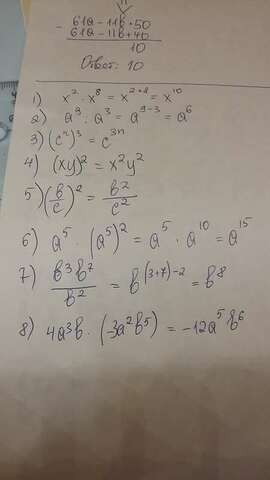 - 61a - 11b + 50
61a - 11b + 40
10
Ответ: 10
1) x² · x⁸ = x²⁺⁸ = x¹⁰
2) a⁹ : a³ = a⁹⁻³ = a⁶
3) (cⁿ)³ = c³ⁿ
4) (xy)² = x²y²
5) (b/c)² = b²/c²
6) a⁵ · (a⁵)² = a⁵ · a¹⁰ = a¹⁵
7) b³b⁷/b² = b⁽³⁺⁷⁾⁻² = b⁸
8) 4a³b · (-3a²b⁵) = -12a⁵b⁶